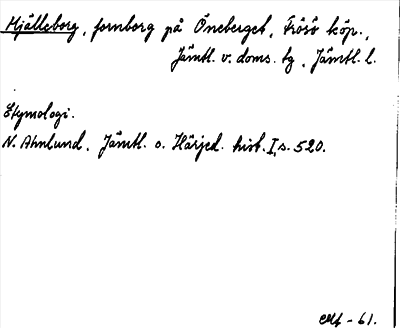 Mjälleborg, fornborg på Öneberget, Frösö köp.,
Jämtl. v. doms. tg, Jämtl. l.
Etymologi.
N. Ahnlund. Jämtl. o. Härjed. hist. I, s. 520.
- 61.